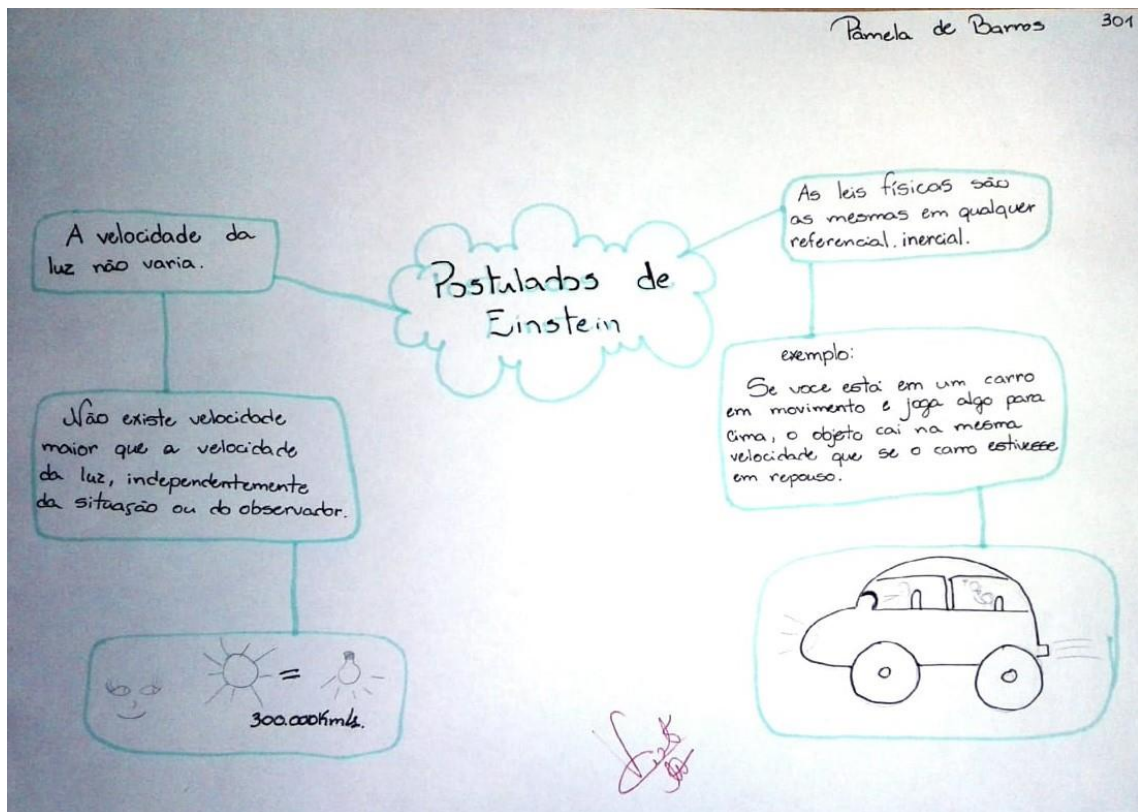 Pâmela de Barros 301
Postulados de
Einstein
A velocidade da
luz não varia.
Não existe velocidade
maior que a velocidade
da luz, independentemente
da situação ou do observador.
=
300.000Km/s.
As leis físicas são
as mesmas em qualquer
referencial inercial.
exemplo:
Se voce está em um carro
em movimento e joga algo para
cima, o objeto cai na mesma
velocidade que se o carro estivesse
em repouso.